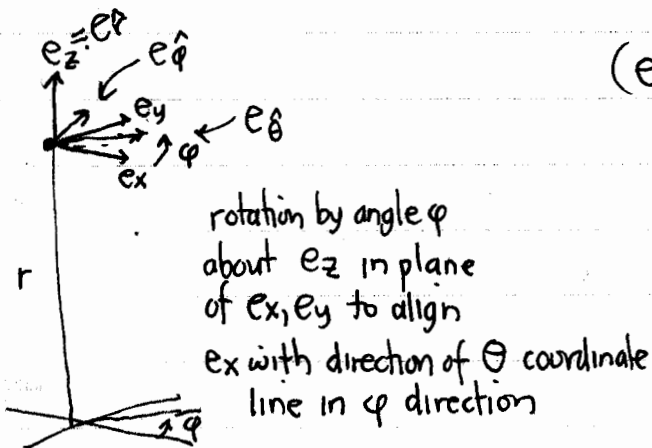 e_z = e_r̂
e_φ̂
(e
e_y
e_θ̂
φ
e_x
rotation by angle φ
about e_z in plane
r
of e_x, e_y to align
e_x with direction of θ coordinate
line in φ direction
φ